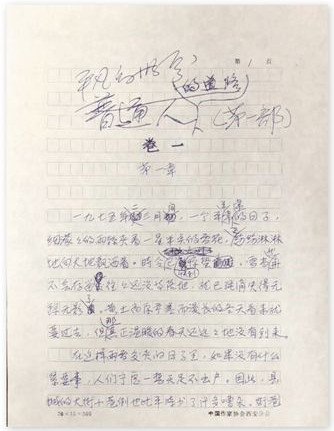 第1页
平凡的世界
普通人的道路
(第一部)
卷一
第一章
一九七五年二三月间，一个平常的日子，
细蒙蒙的雨丝夹着一星半点的雪花，纷纷淋淋
地向大地飘洒着。时令已惊蛰，雪当然再
不会存留，往往还没等落地，就已经消失得无
踪无影了。黄土高原严寒而漫长的冬天看来就
要过去，但那真正温暖的春天还远远地没有到来。
在这样雨雪交加的日子里，如果没有什么
紧要事，人们宁愿一整天足不出户。因此，县
城的大街小巷倒也比平时少了许多嘈杂。
中国作家协会西安分会